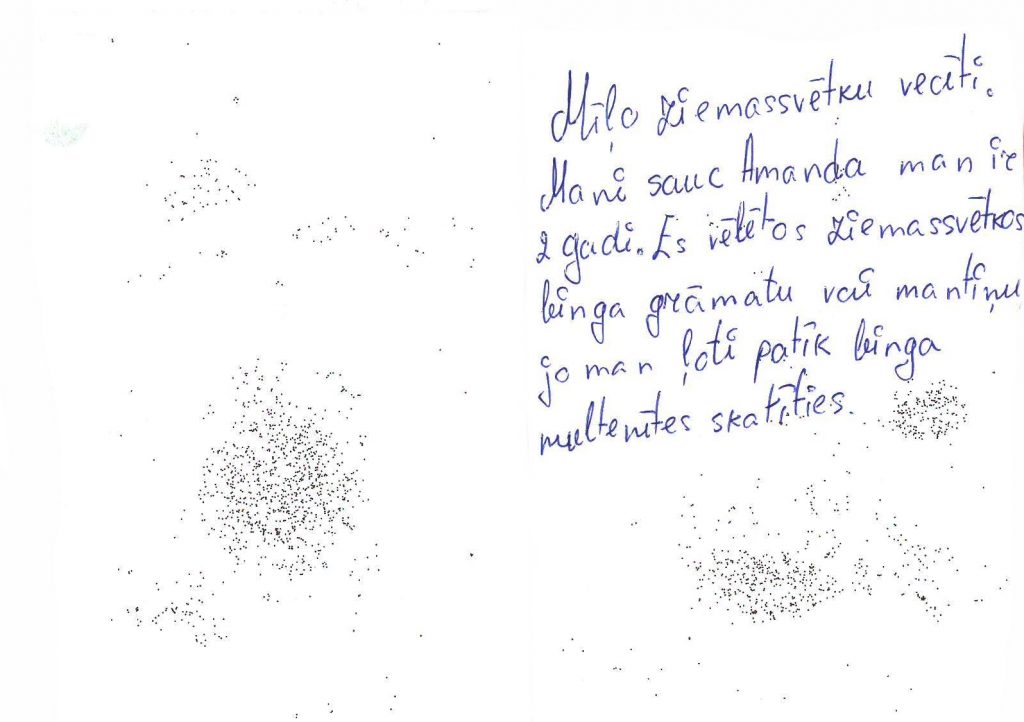 Mīļo ziemassvētku vecīti.
Mani sauc Amanda man ir
2 gadi. Es vēlētos ziemassvētkos
binga grāmatu vai mantiņu
jo man ļoti patīk binga
multenītes skatīties.